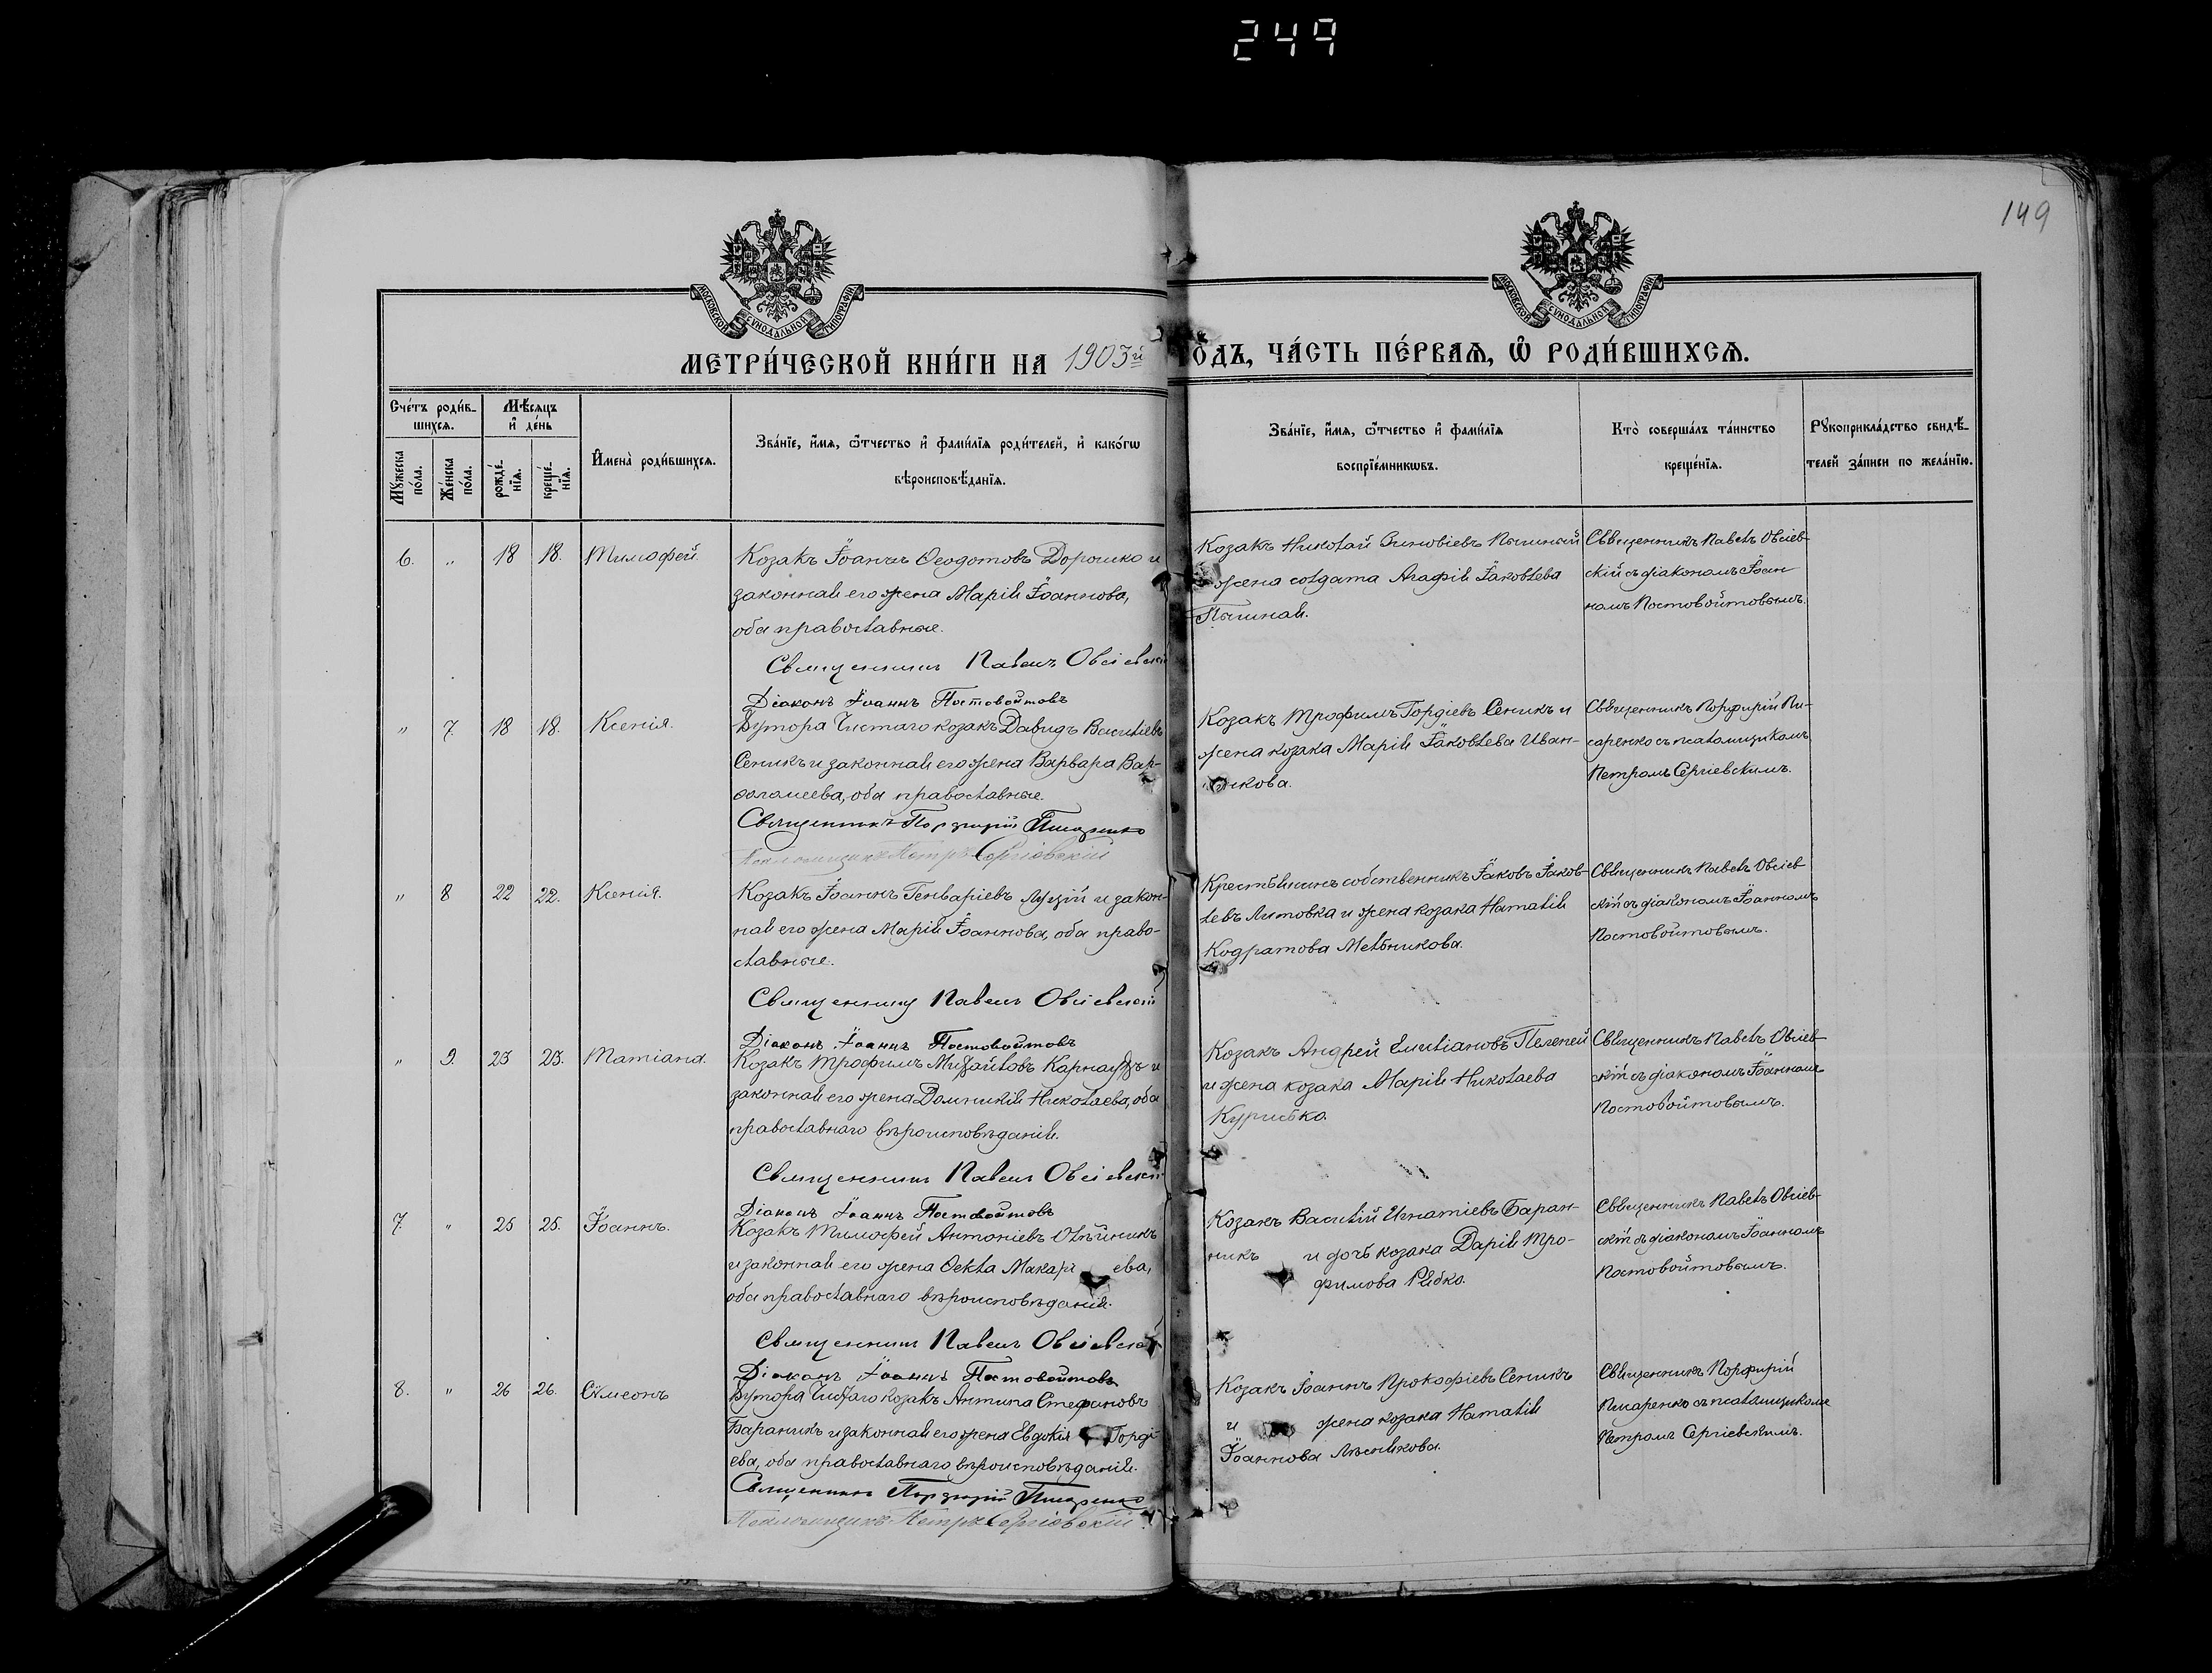 249
149
МОСКОВСКОЙ СУНОДАЛЬНОЙ ТИПОГРАФІИ
МОСКОВСКОЙ СУНОДАЛЬНОЙ ТИПОГРАФІИ
МЕТРИ́ЧЕСКОЙ КНИ́ГИ НА 1903й ГОДЪ, ЧА́СТЬ ПЕ́РВАѦ, Ѡ РОДИ́ВШИХСѦ.
Сче́тъ роди́в-
шихсѧ.
Мꙋ́жеска по́ла.
Же́нска по́ла.
Мѣ́сѧцъ и де́нь
рожде́-нїѧ.
креще́-нїѧ.
Имена̀ роди́вшихсѧ.
Зва́нїе, и́мѧ, ѻ́тчество и фами́лїѧ роди́телей, и како́гѡ
вѣроисповѣ́данїѧ.
Зва́нїе, и́мѧ, ѻ́тчество и фами́лїѧ
воспрїе́мникѡвъ.
Кто̀ соверша́лъ та́инство
креще́нїѧ.
Рꙋкоприкла́дство свидѣ́-
телей за́писи по жела́нїю.
6. " 18 18. Тимофей.
Козакъ Іоаннъ Ѳеодотовъ Дорошко и
законная его жена Марія Іоаннова,
оба православные.
Священникъ Павелъ Овсіевскій
Діаконъ Іоаннъ Постовойтовъ
Козакъ Николай Зиновіевъ
жена солдата Агафія Іаковлева
Священникъ Павелъ Овсіев-
скій съ діакономъ Іоан
номъ Постовойтовымъ.
" 7. 18 18. Ксенія.
Хутора Чистаго козакъ Давидъ Васильевъ
Сеникъ и законная его жена Варвара Вар-
ѳоломеева, оба православные.
Священникъ Порфирій Писаренко
Псаломщикъ Петръ Сергіевскій
Козакъ Трофимъ Гордіевъ Сеникъ и
жена козака Марія Іаковлева Иван-
никова.
Священникъ Порфирій Пи-
саренко съ псаломщикомъ
Петромъ Сергіевскимъ.
" 8 22 22. Ксенія.
Козакъ Іоаннъ Генваріевъ и закон-
ная его жена Марія Іоаннова, оба право-
славные.
Священникъ Павелъ Овсіевскій
Діаконъ Іоаннъ Постовойтовъ
Крестьянинъ собственникъ Іаковъ Іаков-
левъ Литовка и жена козака Наталія
Кодратова Мельникова.
Священникъ Павелъ Овсіев
скій съ діакономъ Іоанномъ
Постовойтовымъ.
" 9. 23 23. Татіана.
Козакъ Трофимъ Михайловъ Карнаухъ и
законная его жена Домникія Николаева, оба
православнаго вѣроисповѣданія.
Священникъ Павелъ Овсіевскій
Діаконъ Іоаннъ Постовойтовъ
Козакъ Андрей Емиліановъ Пелепей
и жена козака Марія Николаева
Священникъ Павелъ Овсіев-
скій съ діакономъ Іоанномъ
Постовойтовымъ.
7. " 25 25. Іоаннъ.
Козакъ Тимофей Антоніевъ Олѣйникъ
и законная его жена Ѳекла Макарі ева,
оба православнаго вѣроисповѣданія.
Священникъ Павелъ Овсіевскій
Діаконъ Іоаннъ Постовойтовъ
Козакъ Василій Игнатіевъ Баран-
никъ и дочь козака Дарія Тро-
фимова Рябко.
Священникъ Павелъ Овсіев-
скій съ діакономъ Іоанномъ
Постовойтовымъ.
8. " 26 26. Сѵмеонъ
Хутора Чистаго козакъ Антипа Стефановъ
Бараникъ и законная его жена Евдокія Горді-
ева, оба православнаго вѣроисповѣданія.
Священникъ Порфирій Писаренко
Псаломщикъ Петръ Сергіевскій
Козакъ Іоаннъ Прокофіевъ Сеникъ
и жена козака Наталія
Іоаннова
Священникъ Порфирій
Писаренко съ псаломщикомъ
Петромъ Сергіевскимъ.